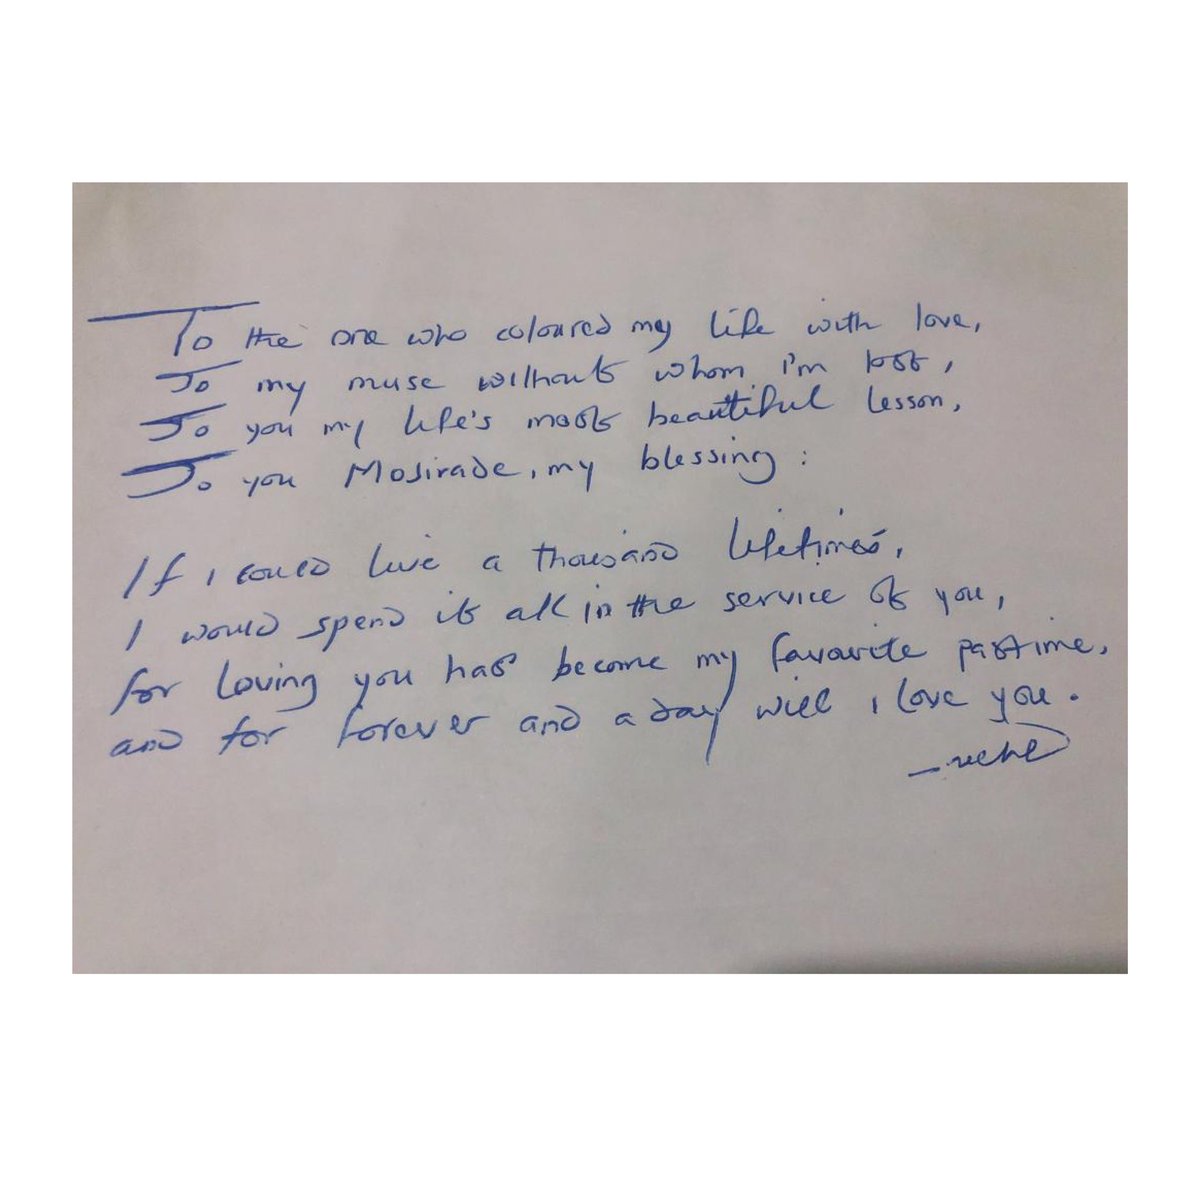 To the one who coloured my life with love,
To my muse without whom I'm lost,
To you my life's most beautiful lesson,
To you Mosirade, my blessing:
If I could live a thousand lifetimes,
I would spend it all in the service of you,
for loving you has become my favourite pastime,
and for forever and a day will I love you.